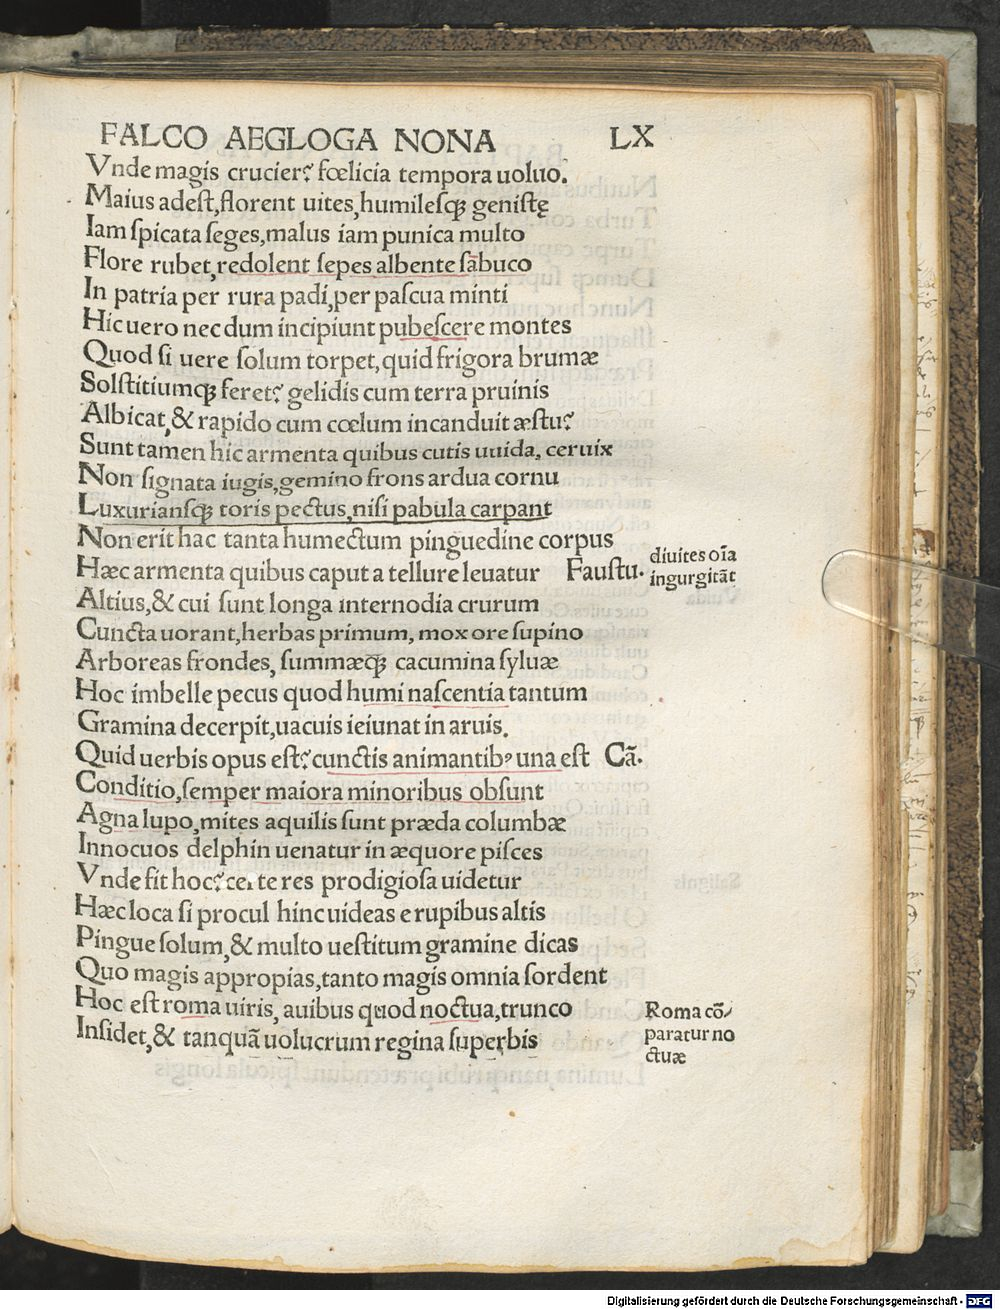 FALCO AEGLOGA NONA LX
Vnde magis crucier? fœlicia tempora uoluo.
Maius adeſt,florent uites,humileſqꝫ geniſtę
Iam ſpicata ſeges,malus iam punica multo
Flore rubet,redolent ſepes albente ſābuco
In patria per rura padi,per paſcua minti
Hic uero nec dum incipiunt pubeſcere montes
Quod ſi uere ſolum torpet,quid frigora brumæ
Solſtitiumqꝫ feret? gelidis cum terra pruinis
Albicat,& rapido cum cœlum incanduit æſtu?
Sunt tamen hic armenta quibus cutis uuida, ceruix
Non ſignata iugis,gemino frons ardua cornu
Luxurianſqꝫ toris pectus,niſi pabula carpant
Non erit hac tanta humectum pinguedine corpus
Hæc armenta quibus caput a tellure leuatur Fauſtu.
diuites oīa
ingurgitāt
Altius,& cui ſunt longa internodia crurum
Cuncta uorant,herbas primum, mox ore ſupino
Arboreas frondes, ſummæqꝫ cacumina ſyluæ
Hoc imbelle pecus quod humi naſcentia tantum
Gramina decerpit,uacuis ieiunat in aruis.
Quid uerbis opus eſt? cunctis animantibꝰ una eſt Cā.
Conditio,ſemper maiora minoribus obſunt
Agna lupo,mites aquilis ſunt præda columbæ
Innocuos delphin uenatur in æquore piſces
Vnde fit hoc? certe res prodigioſa uidetur
Hæc loca ſi procul hinc uideas e rupibus altis
Pingue ſolum,& multo ueſtitum gramine dicas
Quo magis appropias,tanto magis omnia ſordent
Hoc eſt roma uiris, auibus quod noctua,trunco
Inſidet,& tanquā uolucrum regina ſuperbis
Roma cō/
paratur no
ctuæ
Digitalisierung gefördert durch die Deutsche Forschungsgemeinschaft - DFG